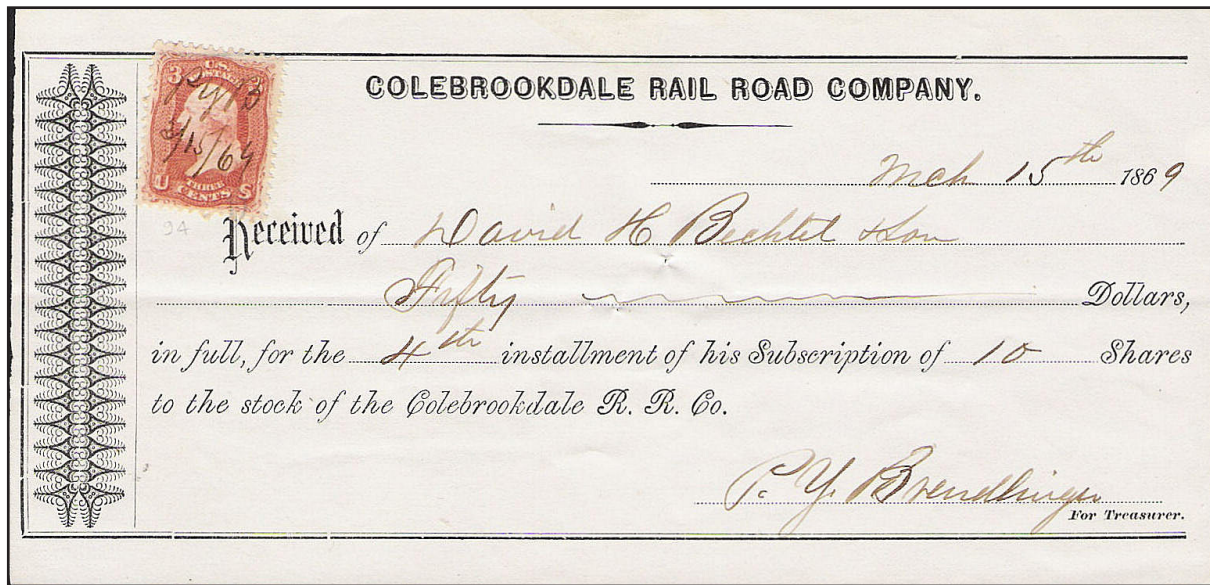 3 U.S. 3
POSTAGE
PYB
3/15/69
U THREE S
CENTS
COLEBROOKDALE RAIL ROAD COMPANY.
Mch 15th 1869
94
Received of David H Bechtel & Son
Fifty Dollars,
in full, for the 4th installment of his Subscription of 10 Shares
to the stock of the Colebrookdale R. R. Co.
P. Y. Brendlinger
For Treasurer.